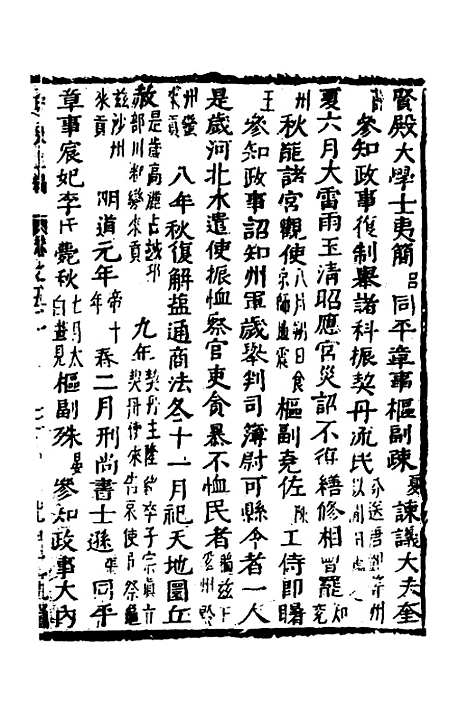 賢殿大學士夷簡呂同平章事樞副竦夏諫議大夫奎
薛參知政事復制舉諸科振契丹流民分送唐鄧等州以閒田處之
夏六月大雷雨玉清昭應宮災詔不復繕修相曾罷知兗
州秋罷諸宮觀使八月朔日食京師地震樞副堯佐陳工侍即曙
王參知政事詔知州軍歲舉判司簿尉可縣令者一人
是歲河北水遣使振恤察官吏貪暴不恤民者龜茲下瓜州黔
州蠻來貢八年秋復解鹽通商法冬十一月祀天地圜丘
赦是歲高麗占城邛部川都蠻來貢九年契丹主隆緒卒子宗真立契丹使來告哀使吊祭龜
茲沙州來貢明道元年帝十年春二月刑尚書士遜張同平
章事宸妃李氏薨秋七月太白晝見樞副殊晏參知政事大內